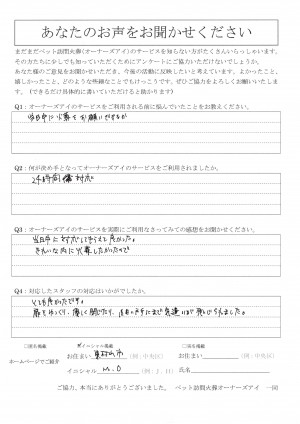 あなたのお声をお聞かせください
まだまだペット訪問火葬(オーナーズアイ)のサービスを知らない方がたくさんいらっしゃいます。
その方たちに少しでも知っていただくためにアンケートにご協力いただけないでしょうか。
あなた様のご意見をお聞かせいただき、今後の活動に反映したいと考えています。よかったこと、
嬉しかったこと、どのような些細なことでもけっこうです。ぜひご協力をよろしくお願いいたします。
(できるだけ具体的に書いていただけると助かります)
Q1:オーナーズアイのサービスをご利用される前に悩んでいたことをお教えください。
当日中に火葬をお願いできるか
Q2:何が決め手となってオーナーズアイのサービスをご利用されましたか。
24時間対応
Q3:オーナーズアイのサービスを実際にご利用なさってみての感想をお聞かせください。
当日中に対応してもらえて良かった。
きれいな内に火葬したかったので
Q4:対応したスタッフの対応はいかがでしたか。
とても良かったです。
扉をゆっくり、優しく閉じたり、
□実名掲載
イニシャル掲載
□匿名掲載
ホームページでご紹介
お住まい 東村山市 (例:中央区)
お住まい (例:中央区)
イニシャル M.O (例:J.H)
氏名
ご協力、本当にありがとうございました。 ペット訪問火葬オーナーズアイ 一同